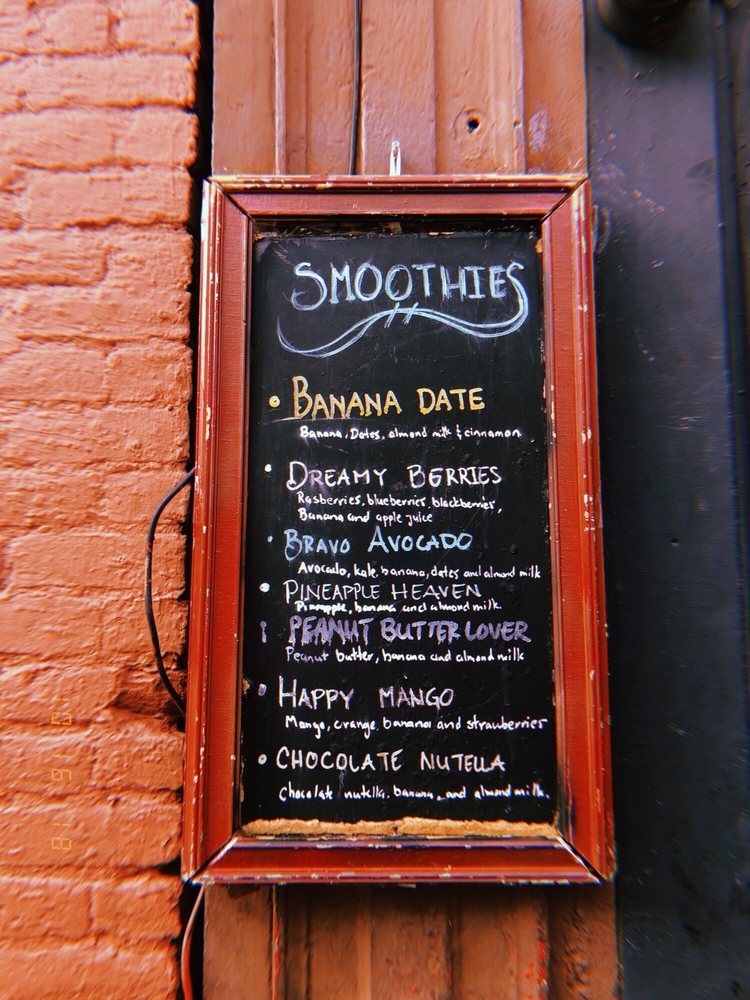 SMOOTHIES
BANANA DATE
Banana, Dates, almond milk & cinnamon
DREAMY BERRIES
Rasberries, blueberries, blackberries,
Banana and apple juice
BRAVO AVOCADO
Avocado, kale, banana, dates and almond milk
PINEAPPLE HEAVEN
Pineapple, banana and almond milk.
PEANUT BUTTER LOVER
Peanut butter, banana and almond milk
HAPPY MANGO
Mango, orange, banana and strawberries
CHOCOLATE NUTELLA
Chocolate nutella, banana, and almond milk.